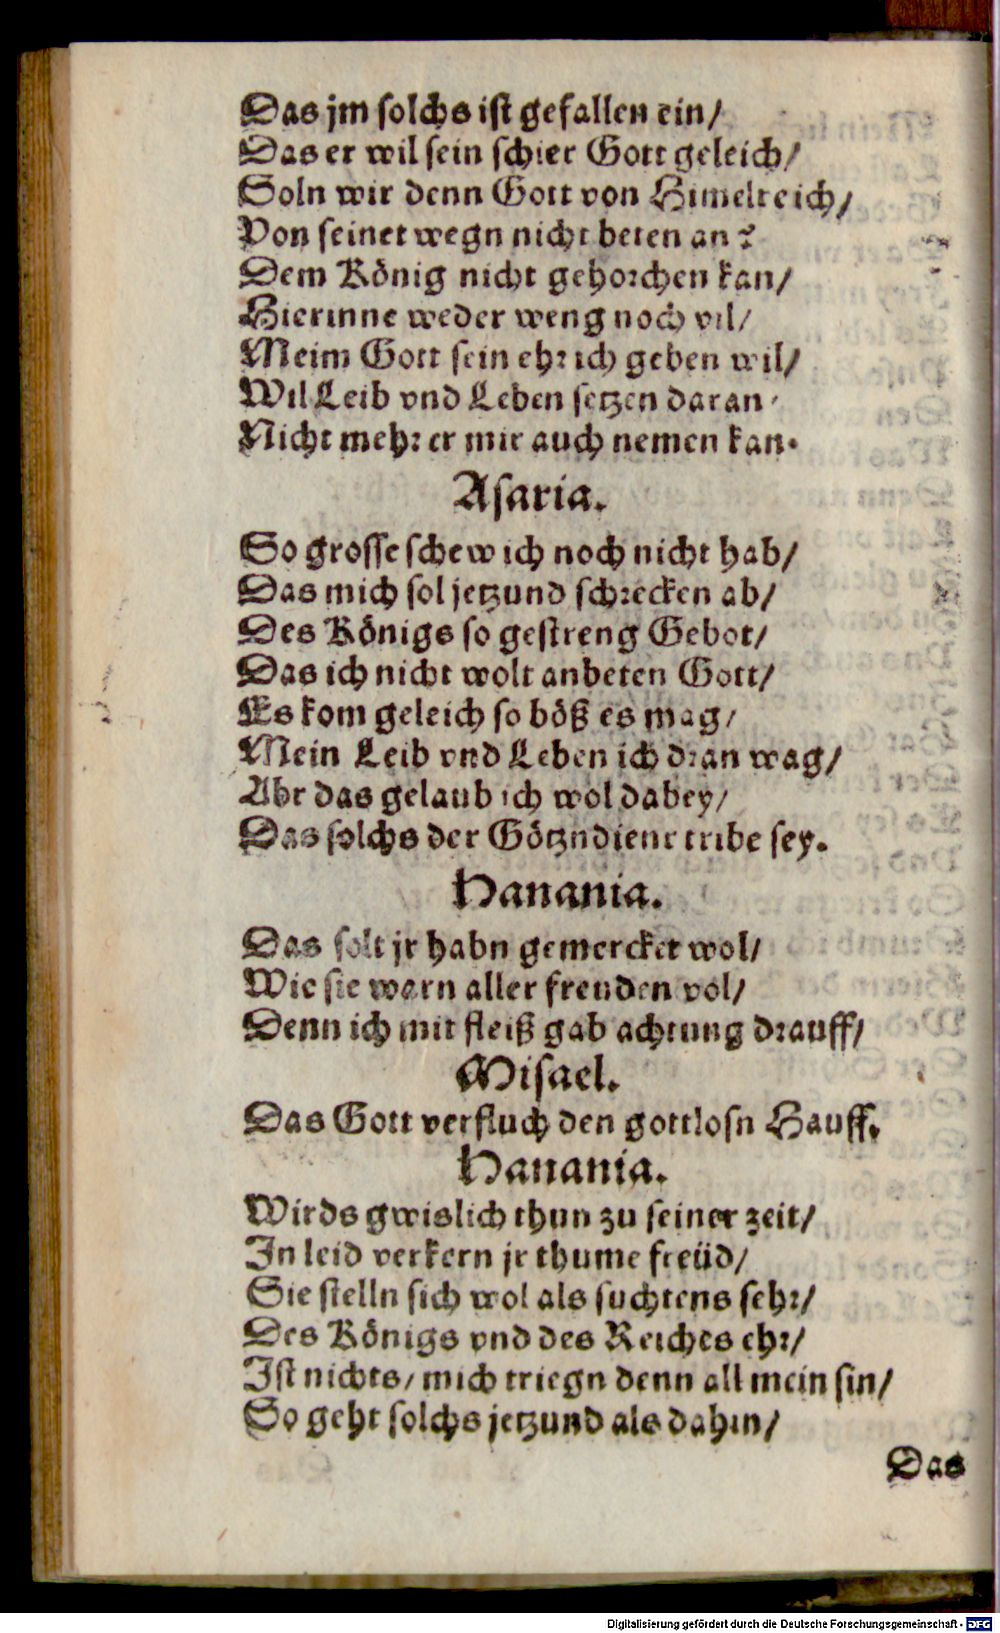 Das jm solchs ist gefallen ein/
Das er wil sein schier Gott geleich/
Soln wir denn Gott von Himelreich/
Von seinet wegn nicht beten an?
Dem König nicht gehorchen kan/
Hierinne weder weng noch vil/
Meim Gott sein ehr ich geben wil/
Wil Leib vnd Leben setzen daran/
Nicht mehr er mir auch nemen kan.
Asaria.
So grosse schew ich noch nicht hab/
Das mich sol jetzund schrecken ab/
Des Königs so gestreng Gebot/
Das ich nicht wolt anbeten Gott/
Es kom geleich so böß es mag/
Mein Leib vnd Leben ich dran wag/
Abr das gelaub ich wol dabey/
Das solchs der Götzndienr tribe sey.
Hanania.
Das solt jr habn gemercket wol/
Wie sie warn aller freuden vol/
Denn ich mit fleiß gab achtung drauff/
Misael.
Das Gott verfluch den gottlosn Hauff.
Hanania.
Wirds gwislich thun zu seiner zeit/
In leid verkern jr thume freüd/
Sie stelln sich wol als suchtens sehr/
Des Königs vnd des Reiches ehr/
Ist nichts/ mich triegn denn all mein sin/
So geht solchs jetzund als dahin/
Das
Digitalisierung gefördert durch die Deutsche Forschungsgemeinschaft - DFG